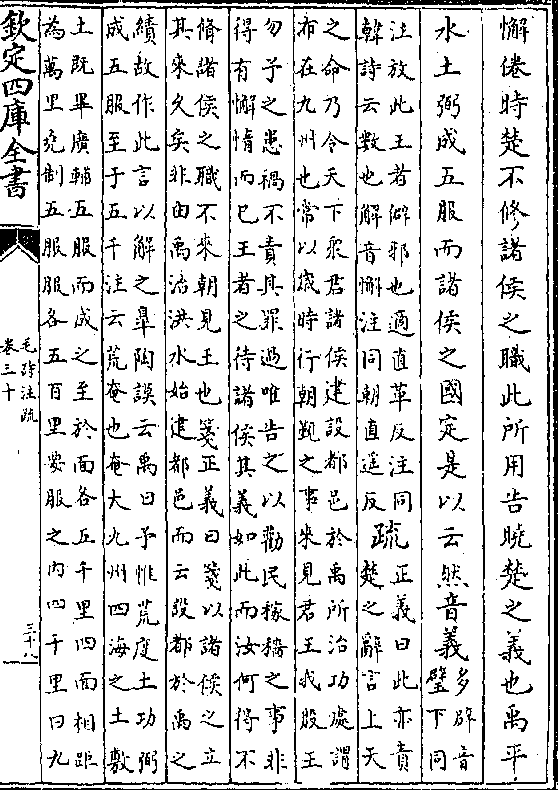 懈倦時楚不修諸侯之職此所用告曉楚之義也禹平
水土弼成五服而諸侯之國定是以云然音義多辟音
璧下同
注放此王者辟邪也適直革反注同
韓詩云數也解音懈注同朝直遥反疏正義曰此亦責
楚之辭言上天
之命乃令天下衆君諸侯建設都邑於禹所治功處謂
布在九州也常以歲時行朝覲之事來見君王我殷王
勿予之患禍不責其罪過唯告之以勸民稼穡之事非
得有懈惰而已王者之待諸侯其義如此而汝何得不
脩諸侯之職不來朝見王也箋正義曰箋以諸侯之立
其來久矣非由禹治洪水始建都邑而云設都於禹之
績故作此言以解之臯陶謨云禹曰予惟荒度土功弼
成五服至于五千注云荒奄也奄大九州四海之土敷
土既畢廣輔五服而成之至於面各五千里四面相距
為萬里堯制五服服各五百里要服之内四千里曰九
欽定四庫全書
毛詩注疏
卷三十
三十八